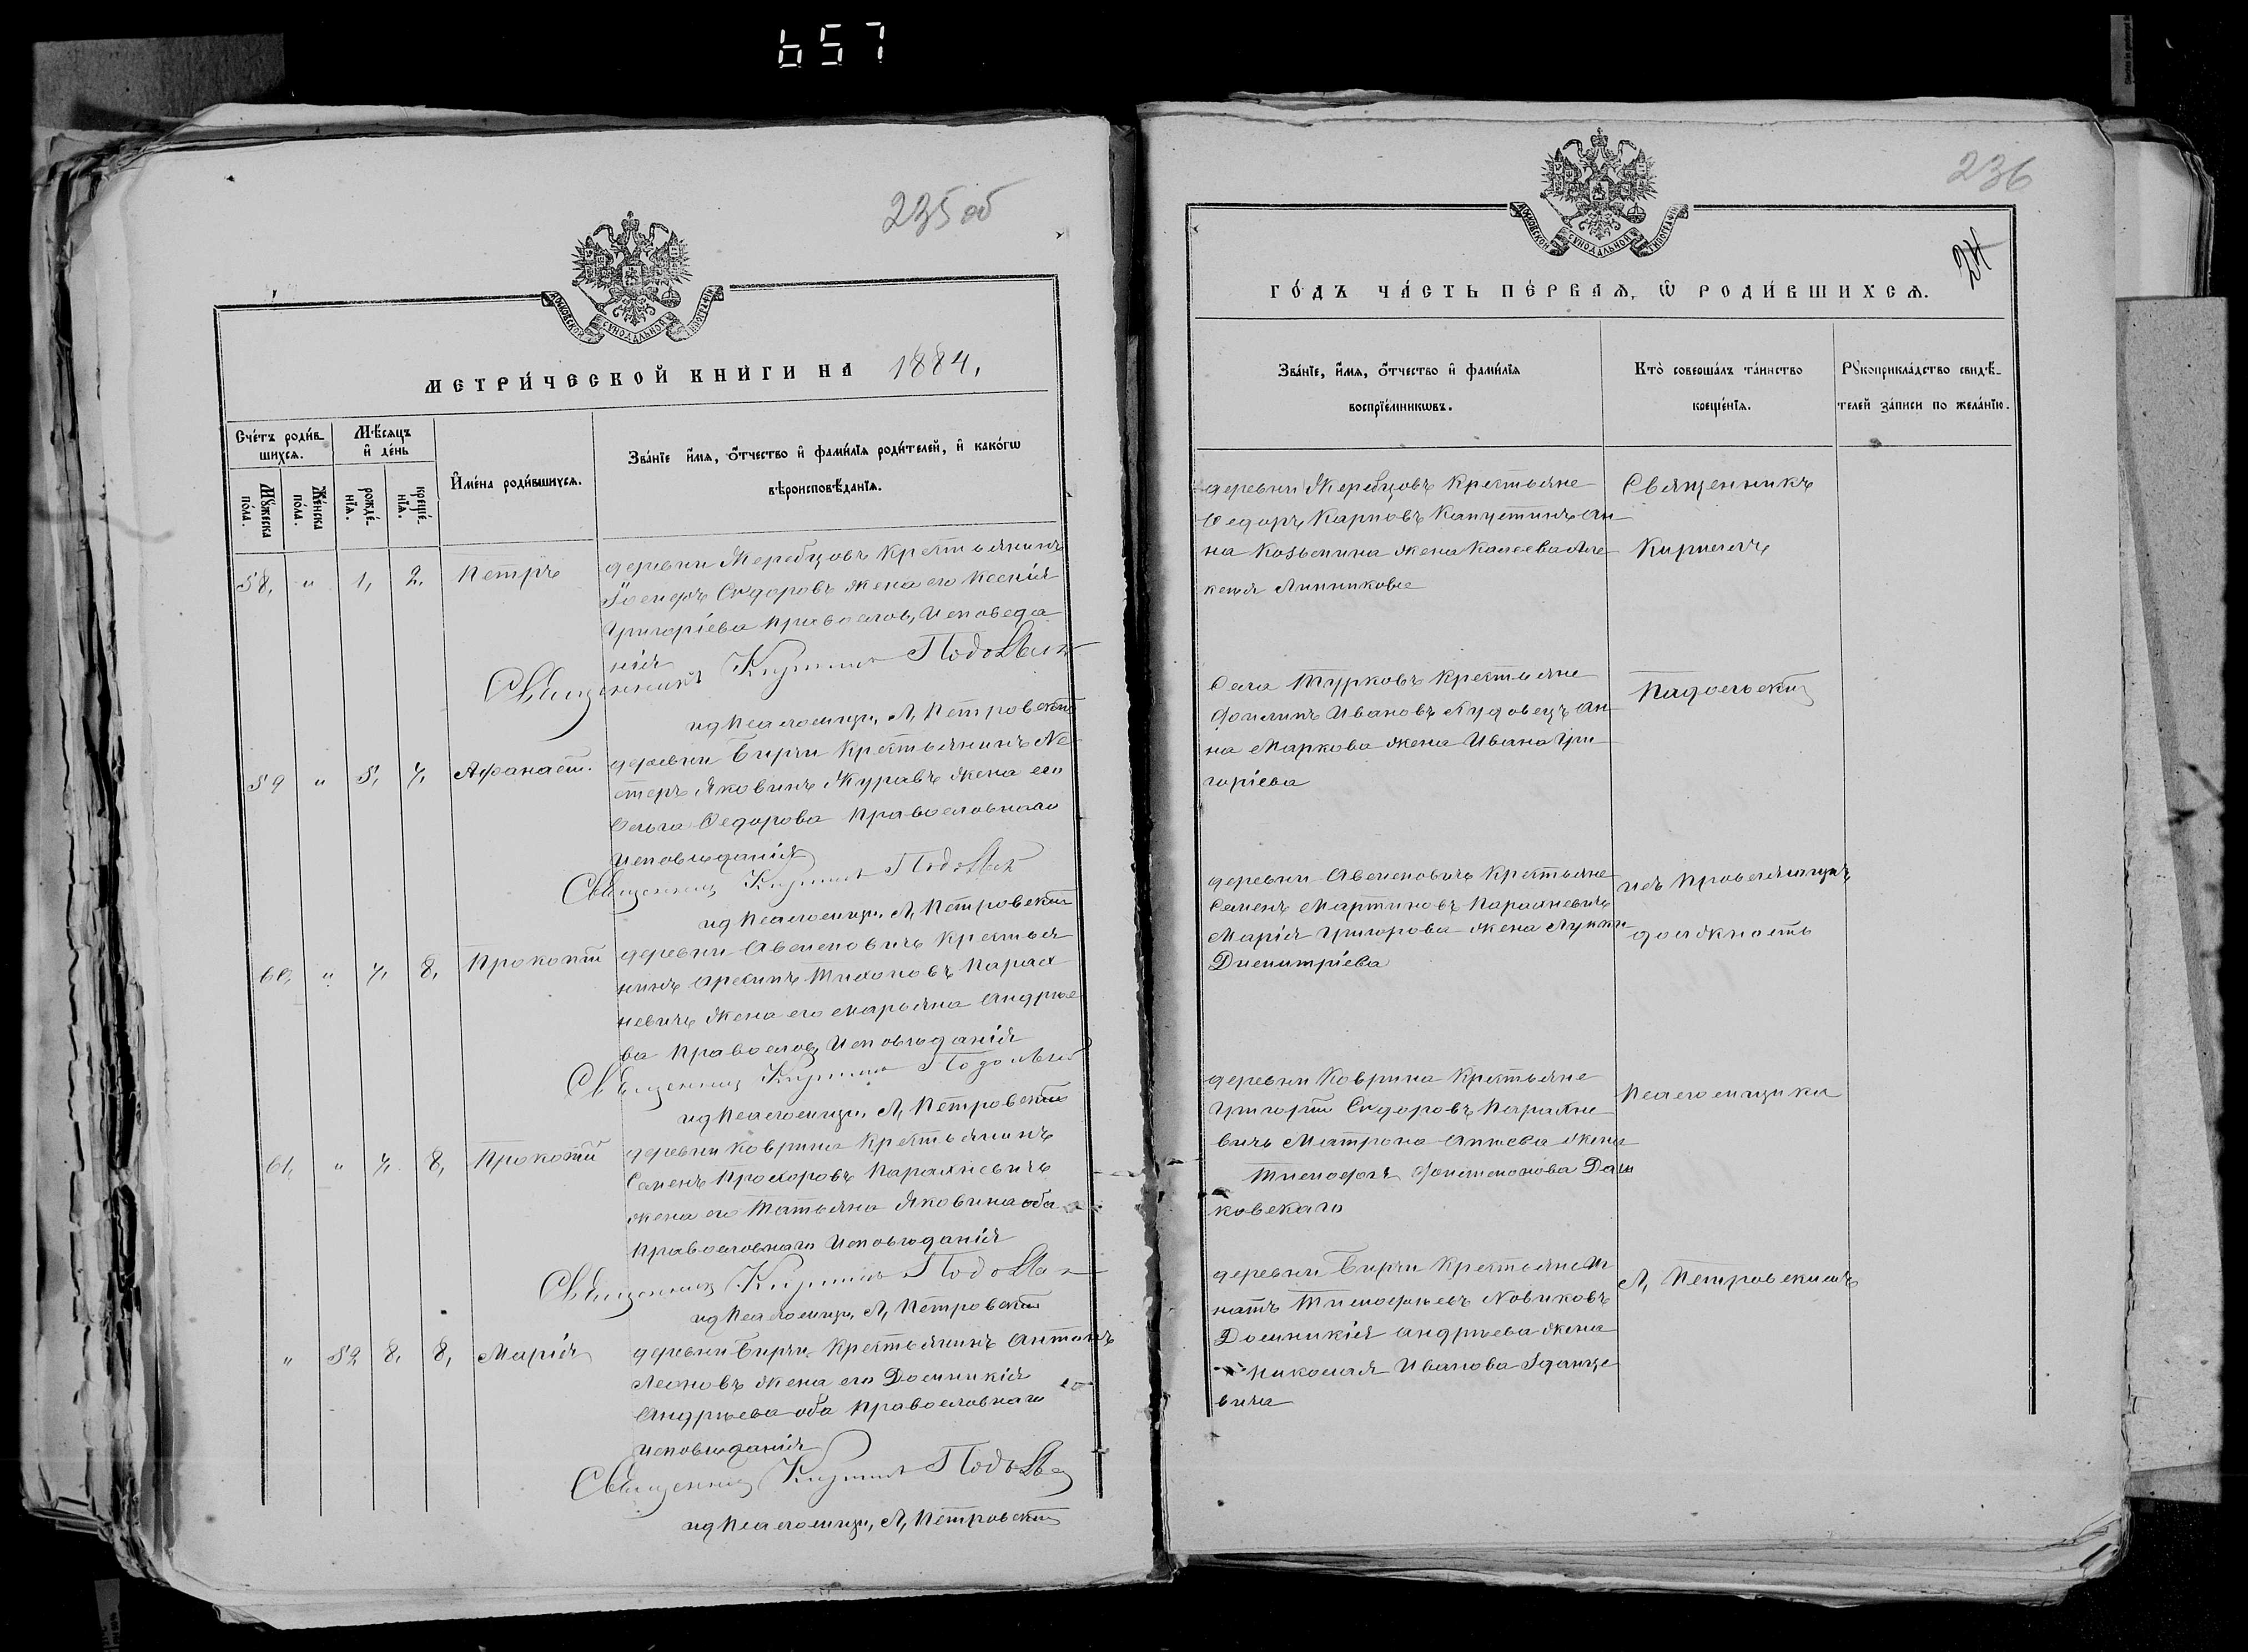 657
235 об
МОСКОВСКОЙ СѴНОДАЛЬНОЙ ТИПОГРАФІИ
МЕТРИ́ЧЕСКОЙ КНИ́ГИ НА 1884,
Сче́тъ роди́в-
шихся.
Мѣ́сяцъ
и де́нь
Му́жеска
по́ла.
Же́нска
по́ла.
рожде́-
нїя.
креще́-
нїя.
И҆мена̀ роди́вшихся.
Зва́нїе и҆́мя, ѻ҆́тчество и҆ фами́лїя роди́телей, и҆ како́гѡ
вѣроисповѣ́данїя.
58, " 1, 2. Петръ
деревни Жеребцовъ крестьянинъ
Ѳедоровъ жена его Ксенія
Григоріева православ, Исповеда
нія
Священникъ Кириллъ Подольскій
ид Псаломщи, Л, Петровскій
59 " 5, 7, Афанасій.
деревни Бирчи Крестьянинъ Не
стеръ Яковинъ Журавъ жена его
Ольга Ѳедорова Православнаго
Исповѣданія
Священник Кириллъ Подольскій
ид Псаломщи, Л, Петровскій
60, " 7, 8, Прокопій
деревни Авсеновичъ Крестья
нинъ Тихоновъ Парах
невичъ жена его Марьяна Андрѣе
ва Православ, Исповѣданія
Священник Кириллъ Подольскій
ид Псаломщи, Л, Петровскій
61, " 7, 8, Прокопій
деревни Коврина Крестьянинъ
Семенъ Прохоровъ Парахневичъ
жена его Татьяна Яковина оба
Православнаго Исповѣданія
Священник Кириллъ Подольскій
ид Псаломщи, Л, Петровскій
" 52 8, 8, Марія
деревни Бирчи Крестьянинъ Антонъ
Леоновъ жена его Домникія
Андрѣева оба Православнаго
Исповѣданія
Священник Кириллъ Подольскій
ид Псаломщи, Л, Петровскій
236
МОСКОВСКОЙ СѴНОДАЛЬНОЙ ТИПОГРАФІИ
24
ГО́ДЪ ЧА́СТЬ ПЕ́РВАЯ, Ѡ҆ РОДИ́ВШИХСЯ.
Зва́нїе, и҆́мя, ѻ҆́тчество и҆ фами́лїя
воспрїе́мникωвъ.
Кто̀ соверша́лъ та́инство
креще́нїя.
Рꙋкоприкла́дство свидѣ́-
телей за́писи по жела́нїю.
деревни Жеребцовъ Крестьяне
Ѳедоръ Карповъ Капустинъ Ан
на Козьмина жена
Линникова
Села Турковъ Крестьяне
Филипъ Ивановъ Ан
на Маркова жена Ивана Гри
горіева
деревни Авсеновичъ Крестьяне
Семенъ Мартиновъ Парахневичъ
Марія Григорова жена Луки
Дмитріева
деревни Коврина Крестьяне
Григорій Сидоровъ Парахне
вичъ Матрона жена
Тимофея Даш
ковскаго
деревни Бирчи Крестьяне И
натъ Тимофѣевъ Новиковъ
Домникія Андрѣева жена
Николая Иванова
вича
Священникъ
Кириллъ
Подольскій
исправляющій
должность
Псаломщика
Л, Петровскимъ